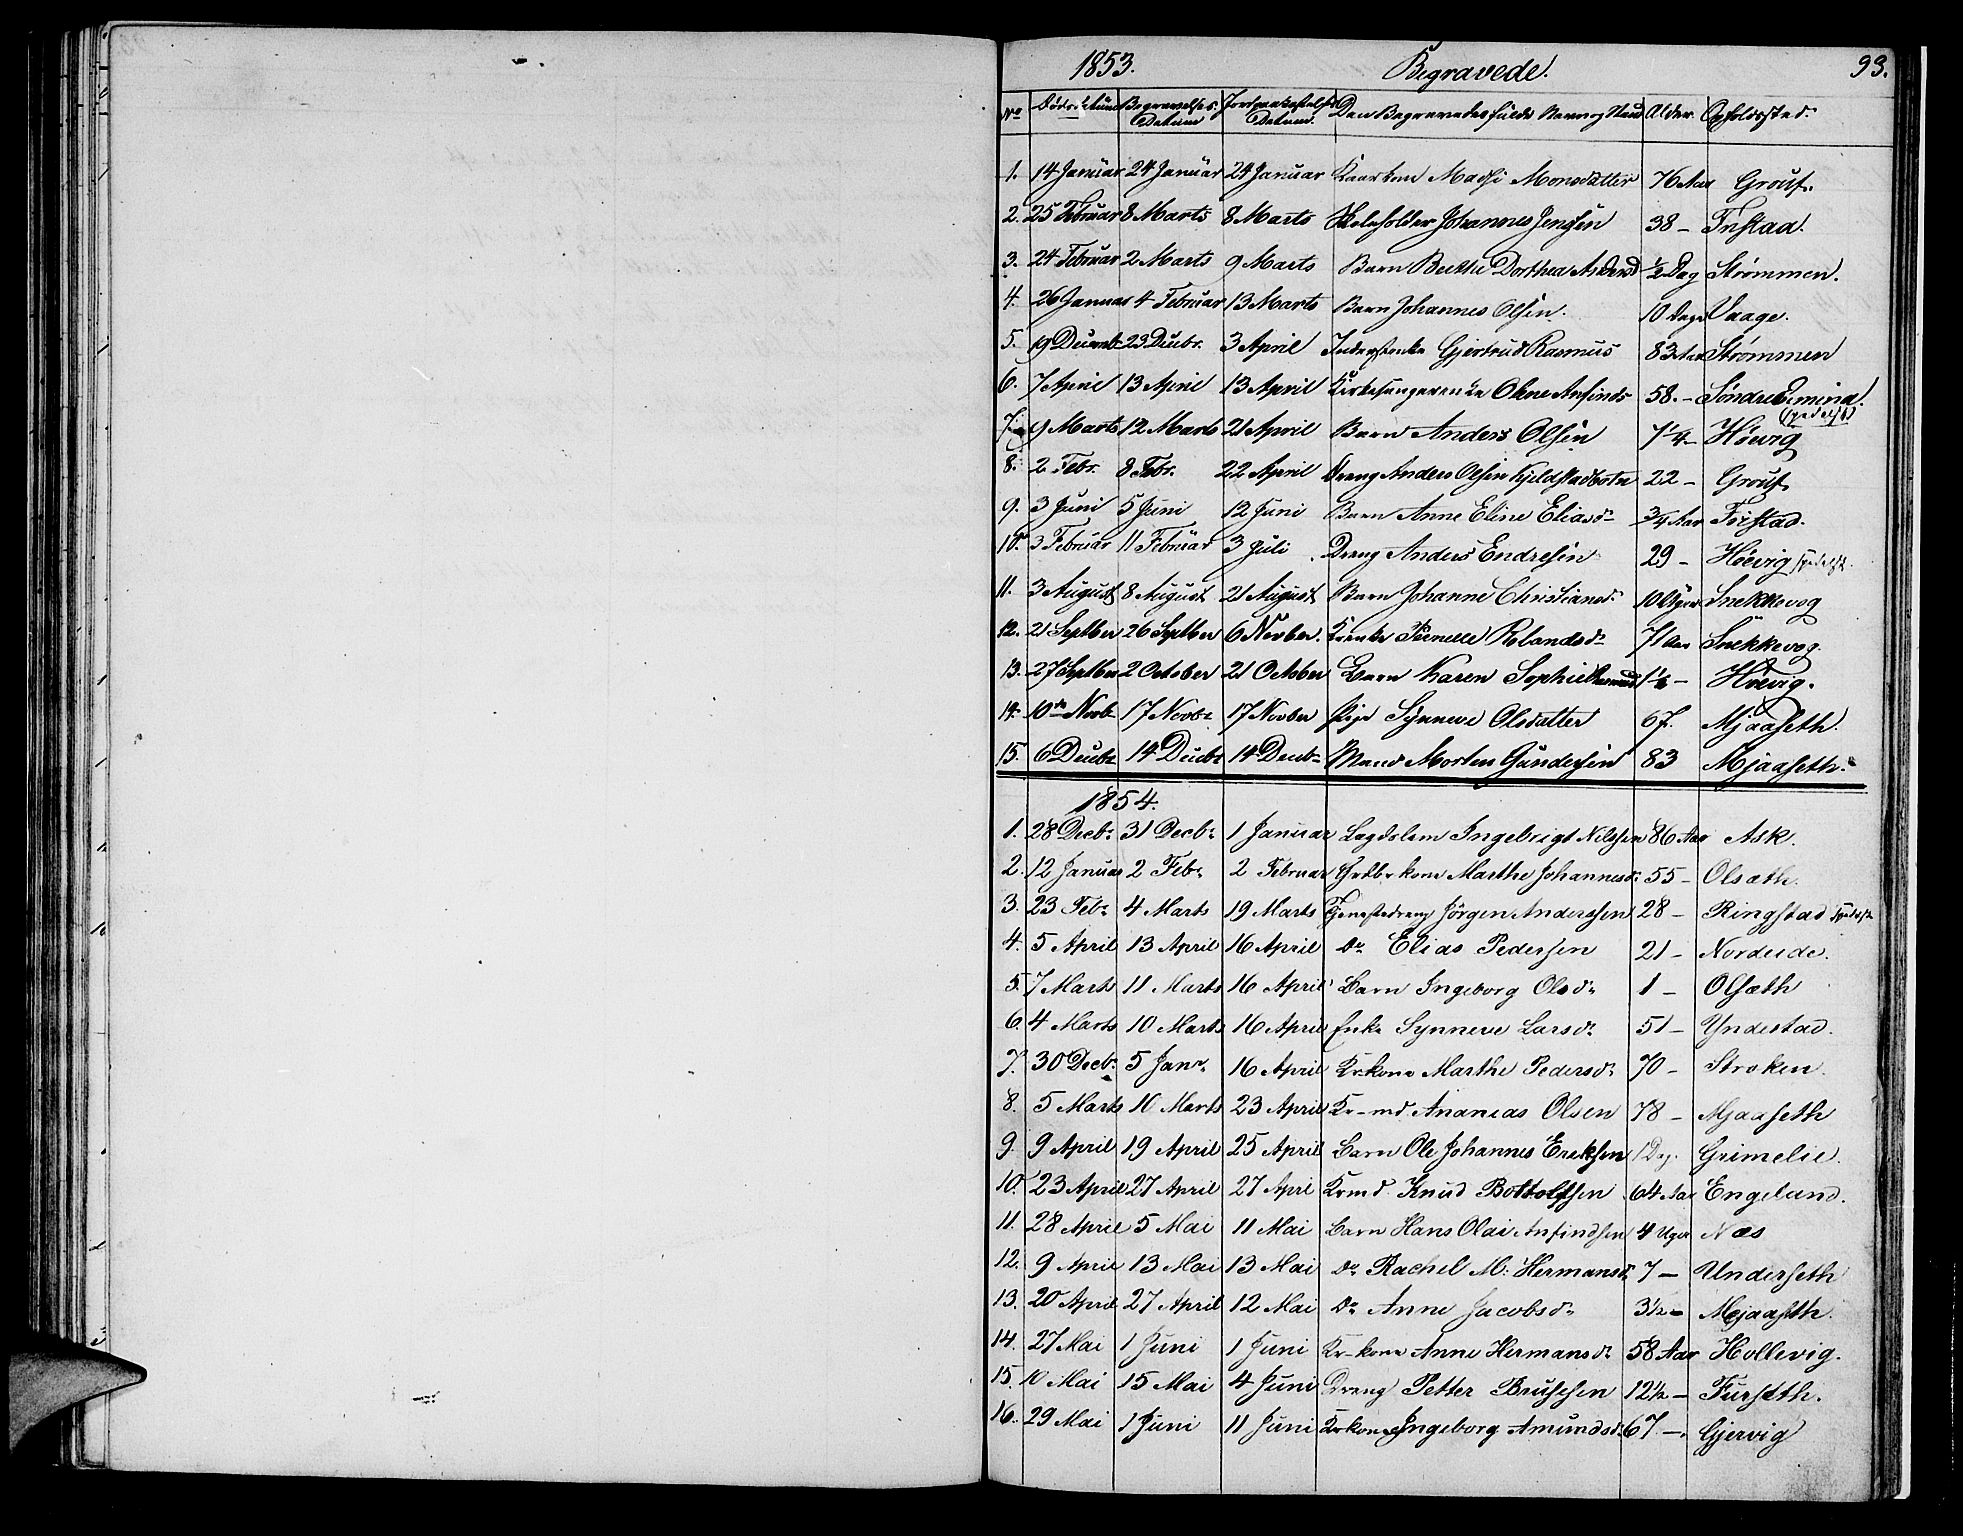 1853. Begravede. 93.
No Døds-Datum Begravelses-Datum Jordpaakastelses Datum. Den Begravedes fulde Navn og Stand Alder. Opholdssted.
1. 14 Januar 24 Januar 24 Januar Kaarkone Madsi Monsdatter 76 Aar Grouf.
2. 25 Februar 8 Marts 8 Marts Skoleholder Johannes Jensen 38 - Tristad.
3. 24 Februar 2 Marts 9 Marts Barn Berthe Dorthea Andersd ½ Dag Strømmen.
4. 26 Januar 4 Februar 13 Marts Barn Johannes Olsen. 10 Dage Vaage.
5. 19 Decemb 23 Decbr. 3 April Inderstenke Gjertrud Rasmus 83 Aar Strømmen
6. 7 April 13 April 13 April Kirkesangerenke Olene Anfinds 58. - Søndre
7. 9 Marts 12 Marts 21 April Barn Anders Olsen 7¼ - Høevig (spedalsk)
8. 2 Febr. 8 Febr. 22 April Dreng Anders Olsen Kjeldstadbotn 22 - Grouf
9. 3 Juni 5 Juni 12 Juni Barn Anne Eline Eliasdr ¾ Aar Tristad.
10. 3 Februar 11 Februar 3 Juli Dreng Anders Endresen 29 - Høevig spedalsk.
11. 3 August 8 August 21 August Barn Johanne Christiansd. 10 Uger Snekkevog
12. 21 Septber 26 Septber 6 Novber. Kaarenke Pernelle Rolandsdr 71 Aar Snekkevog.
13. 27 Septber 2 October 21 October Barn Karen Sophie 1½ - Høevig.
14. 10de Novb 17 Novbr 17 Novber Pige Synneve Olsdatter 67. Mjaaseth.
15. 6 Decbr 14 Decbr 14 Decbr Mand Morten Gundersen 83 Mjaaseth.
1854.
1. 28 Decbr 31 Decbr 1 Januar Lægdslem Ingebrigt Nilssen 86 Aar Ask.
2. 12 Januar 2 Febr 2 Februar Grdbrkone Marthe Johannesdr 55 - Olsæth.
3. 23 Febr 4 Marts 19 Marts Tjenestedreng Jørgen Anderssen 28 - Ringstad spedalsk
4. 5 April 13 April 16 April Do Elias Pedersen 21 - Nordeide.
5. 7 Marts 11 Marts 16 April Barn Ingeborg Olsdr 1 - Olsæth
6. 4 Marts 10 Marts 16 April Enke Synneve Larsdr 51 - Yndestad.
7. 30 Decbr 5 Janr 16 April Krkone Marthe Pedersdr 70 - Stroken.
8. 5 Marts 10 Marts 23 April Kr-md Ananias Olsen 78 - Mjaaseth
9. 9 April 19 April 25 April Barn Ole Johannes Ereksen 1 Dag. Grimelie.
10. 23 April 27 April 27 Apri Krmd Knud Bottolfsen 64 Aar Engeland.
11. 28 April 5 Mai 11 Mai Barn Hans Olai Anfindsen 4 Uger Næs
12. 9 April 13 Mai 13 Mai Do Rachel M: Hermansd. 7 - Underseth
13. 20 April 27 April 12 Mai Do Anne Jacobsdr 3½ - Mjaaseth.
14. 27 Mai 1 Juni 1 Juni Kr-kone Anne Hermansdr 58 Aar Hollevig.
15. 10 Mai 15 Mai 4 Juni Dreng Petter Brusesen 12½ - Furseth.
16. 29 Mai 1 Juni 11 Juni Krkone Ingeborg Amundsd. 67 - Gjervig